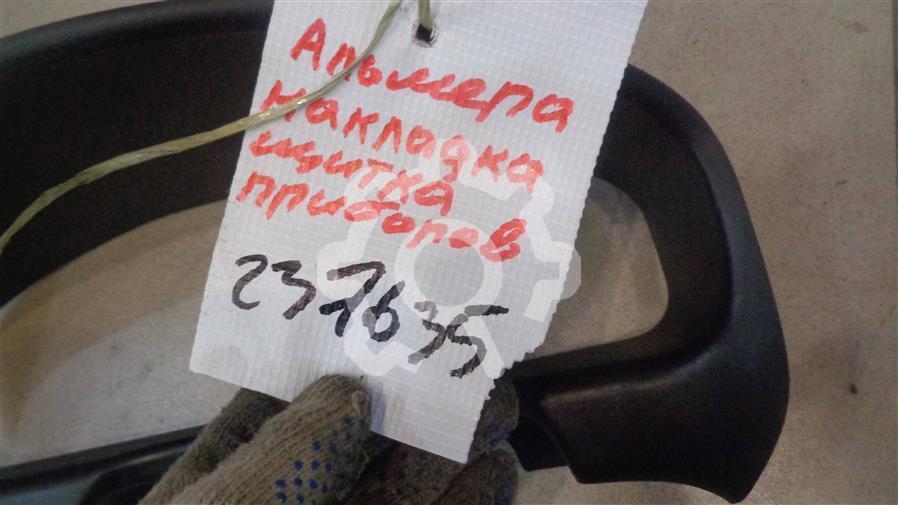 Альмера
накладка
щитка
приборов
237635